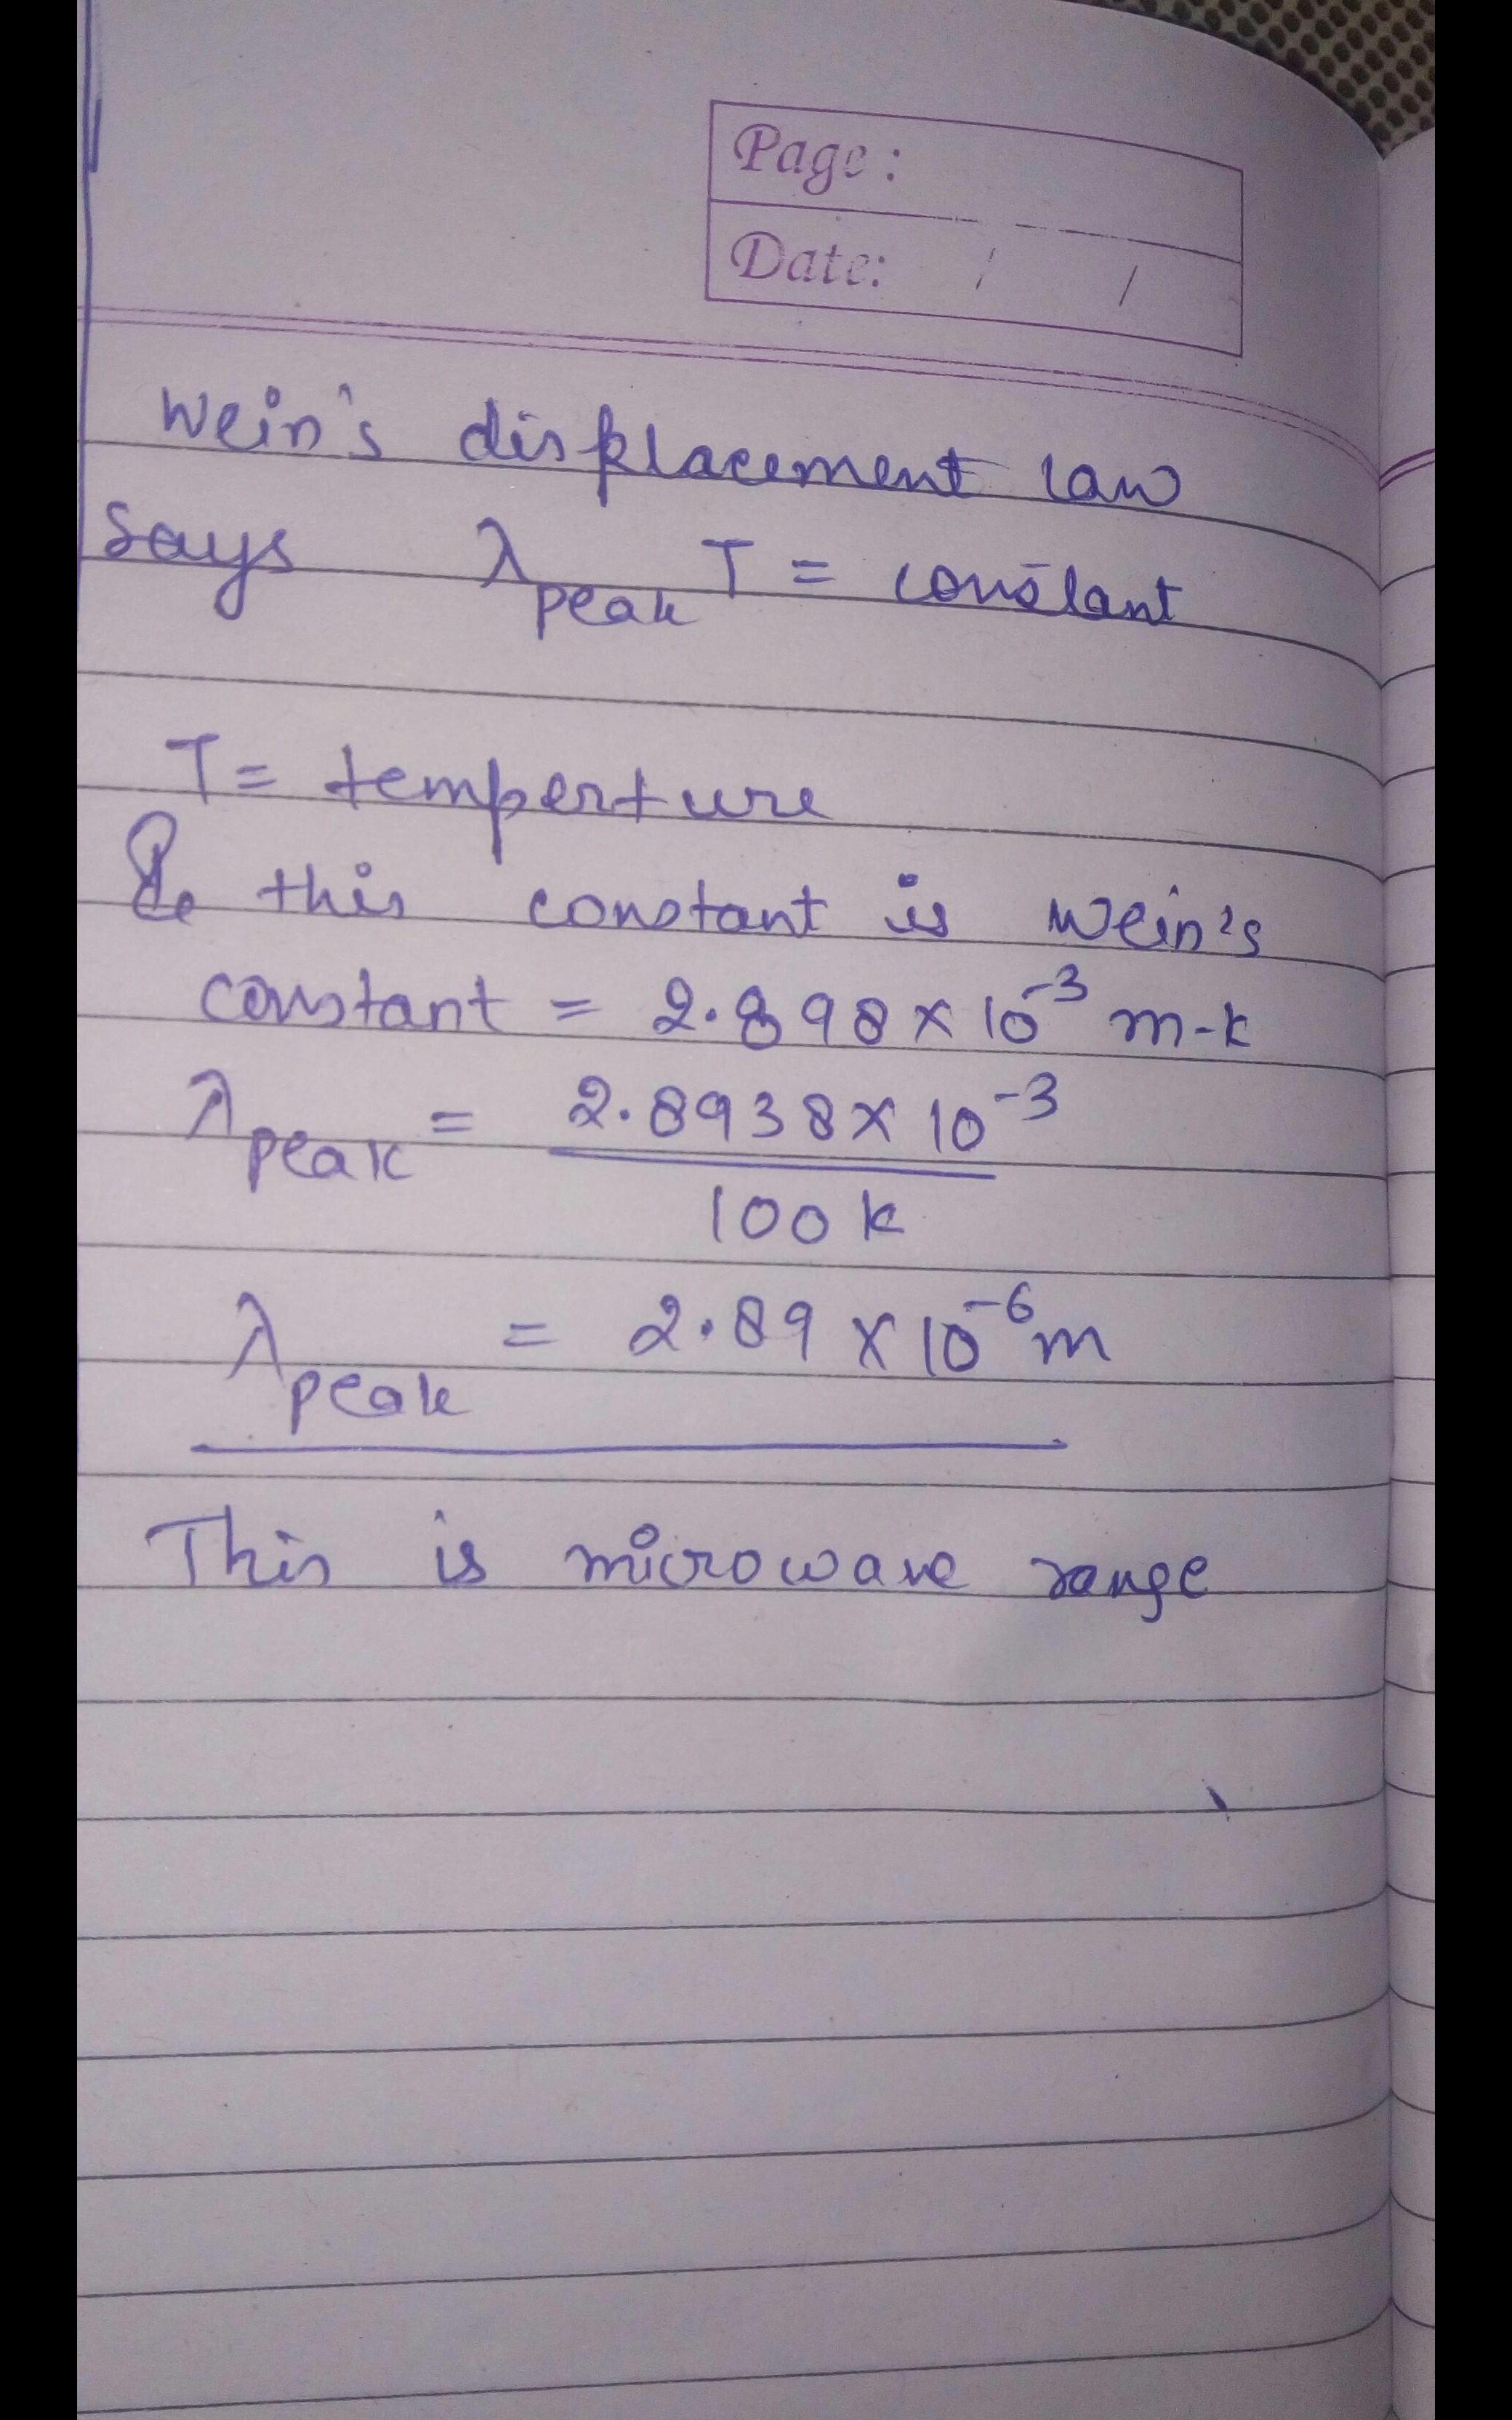 Page :
Date: / /
Wein's displacement law
says λpeak T = constant
T = temperture
this constant is Wein's
constant = 2.898 × 10⁻³ m-k
λpeak = 2.8938 × 10⁻³
100 k
λpeak = 2.89 × 10⁻⁶ m
This is microwave range